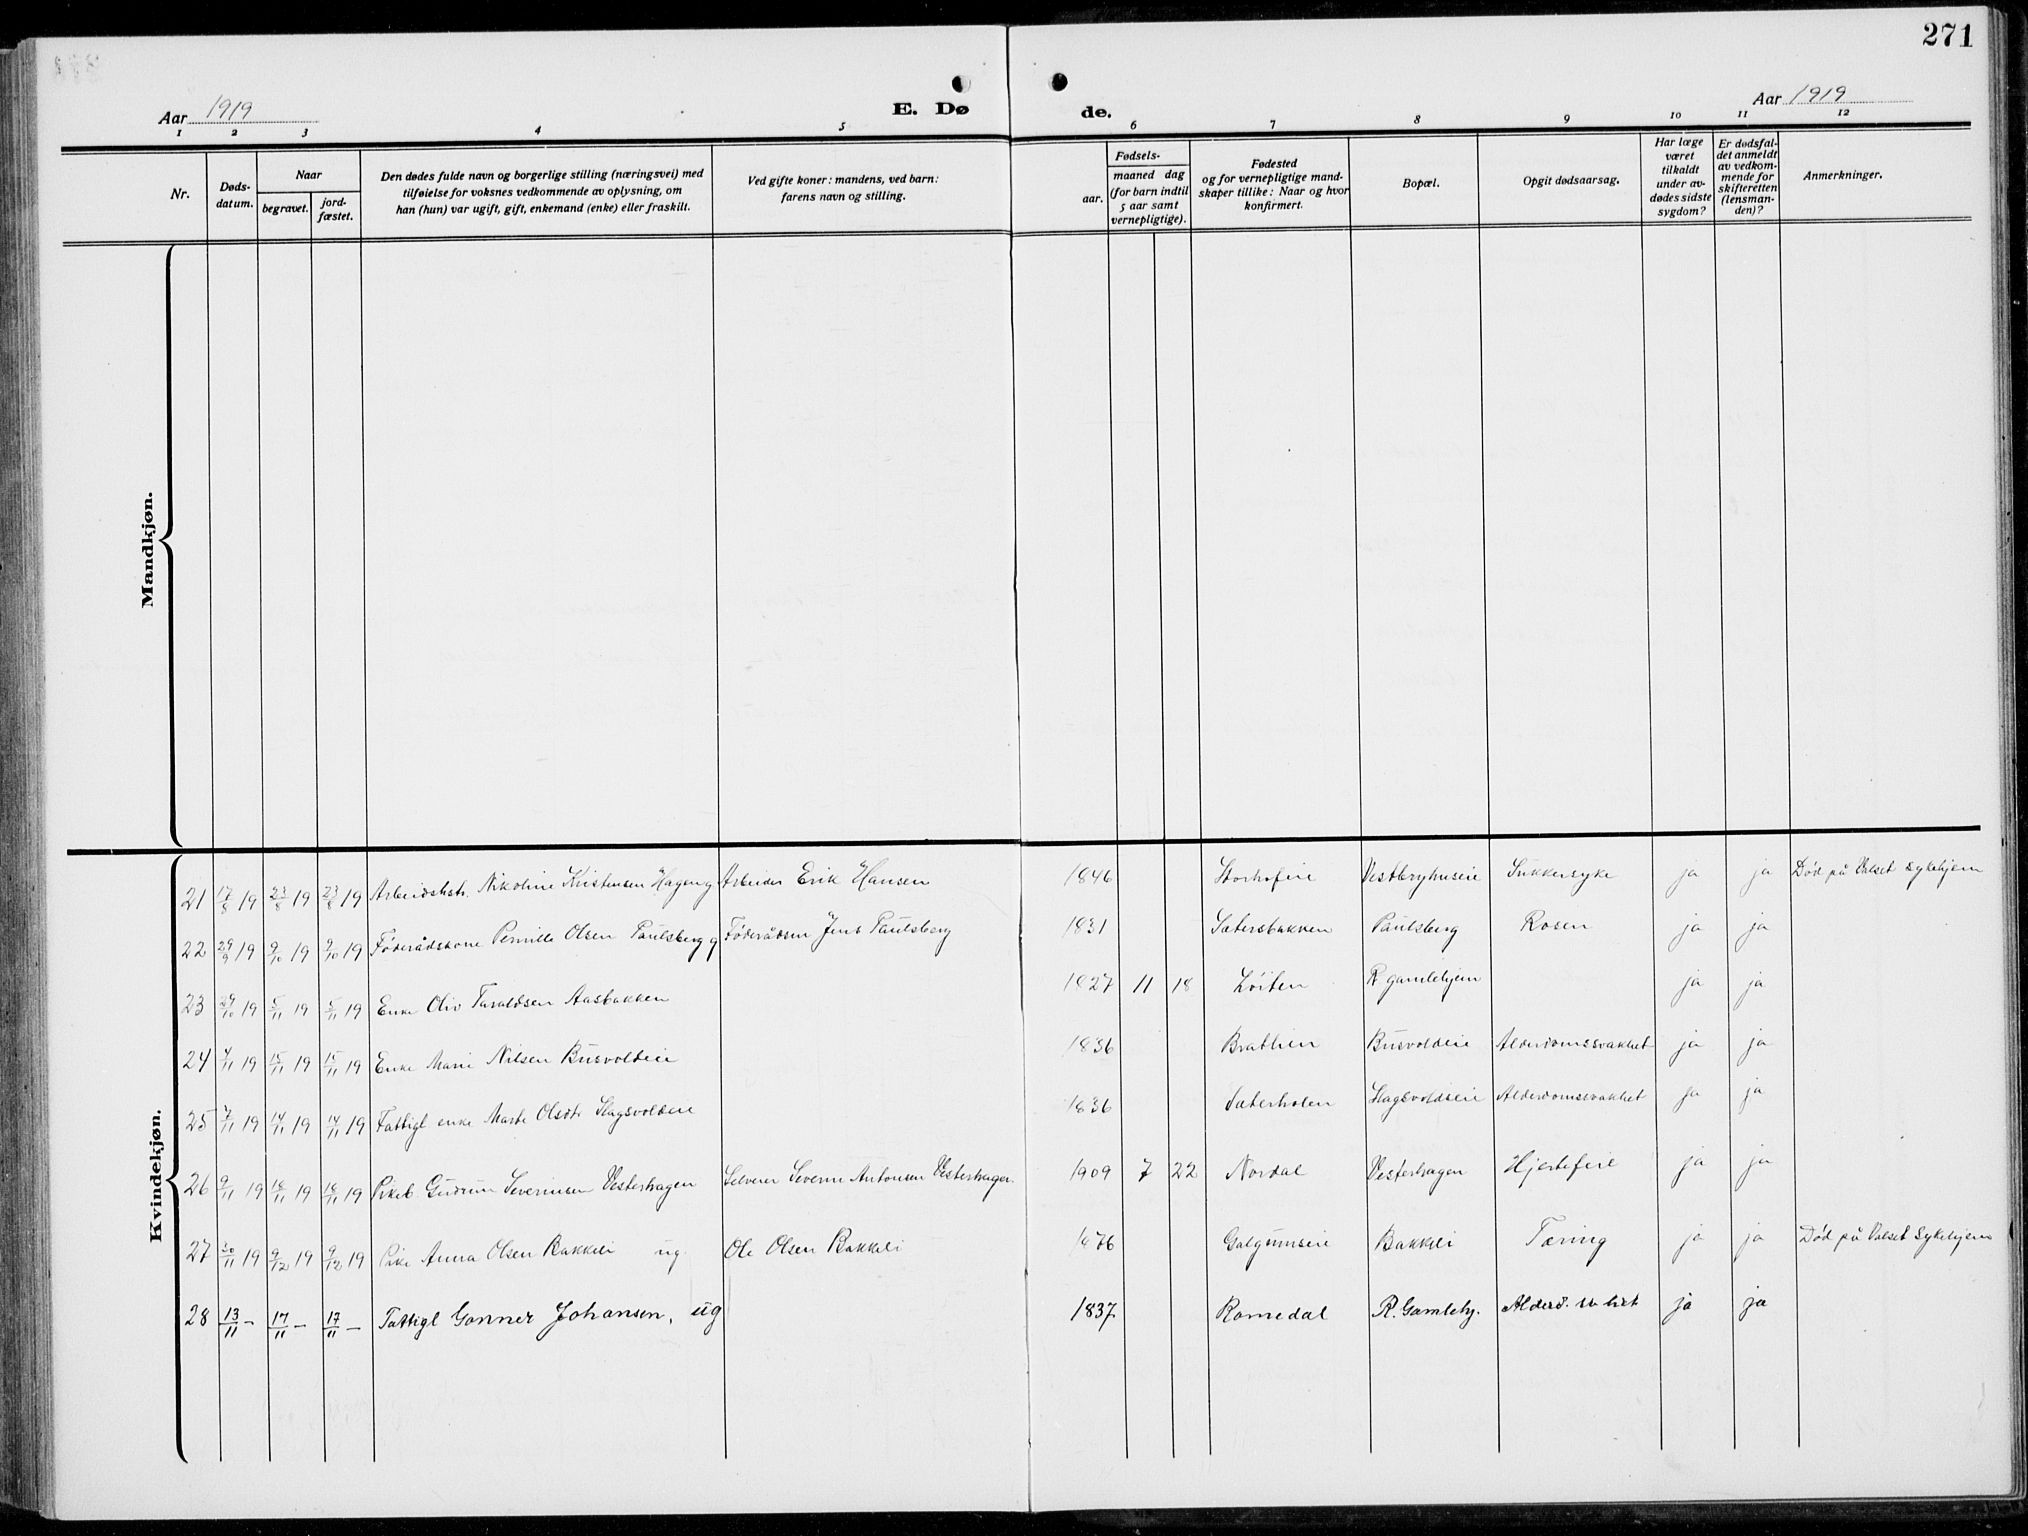 271
Aar 1919
E. Dø
de.
Aar 1919
1 2 3 4 5 6 7 8 9 10 11 12
Nr.
Døds-
datum.
Naar
begravet.
jord-
fæstet.
Den dødes fulde navn og borgerlige stilling (næringsvei) med
tilføielse for voksnes vedkommende av oplysning, om
han (hun) var ugift, gift, enkemand (enke) eller fraskilt.
Ved gifte koner: mandens, ved barn:
farens navn og stilling.
aar.
Fødsels-
maaned dag
(for barn indtil
5 aar samt
vernepligtige).
Fødested
og for vernepligtige mand-
skaper tillike: Naar og hvor
konfirmert.
Bopæl.
Opgit dødsaarsag.
Har læge
været
tilkaldt
under av-
dødes sidste
sygdom?
Er dødsfal-
det anmeldt
av vedkom-
mende for
skifteretten
(lensman-
den)?
Anmerkninger.
Mandkjøn.
Kvindekjøn.
21 17/8 19 23/8 19 23/8 19 Nikoline Kristensen Hagen g Arbeider Erik Hansen 1846 Storhofeie Vestbyhuseie Sukkersyke ja ja Død på Valset sykehjem
22 29/9 19 9/10 19 9/10 19 Føderådskone Pernille Olsen Paulsberg g Føderådsm Jens Paulsberg 1831 Sætersbakken Paulsberg Rosen ja ja
23 29/10 19 5/11 19 5/11 19 Enke Oliv Taraldsen Aasbakken 1827 11 18 Löiten R gamlehjem ja ja
24 7/11 19 15/11 19 15/11 19 Enke Marie Nilsen Busvoldeie 1836 Brathien Busvoldeie Alderdomssvakhet ja ja
25 7/11 19 14/11 19 14/11 19 Fattigl enke Marte Olsdtr Slagsvoldeie 1836 Sæterholen Slagsvoldseie Alderdomssvakhet ja ja
26 9/11 19 18/11 19 18/11 19 Pikeb Gudrun Severinsen Vesterhagen Selveier Severin Antonsen Vesterhagen 1909 7 22 Nordal Vesterhagen Hjertefeil ja ja
27 30/11 19 9/12 19 9/12 19 Pike Anna Olsen Bakkeli ug. Ole Olsen Bakkeli 1876 Galgumseie Bakkeli Tæring ja ja Død på Valset Sykehjem
28 13/11 – 17/11 – 17/11 – Fattigl Gonner Johansen, ug 1837 Romedal R. Gamlehj. Alderd. sv het ja ja